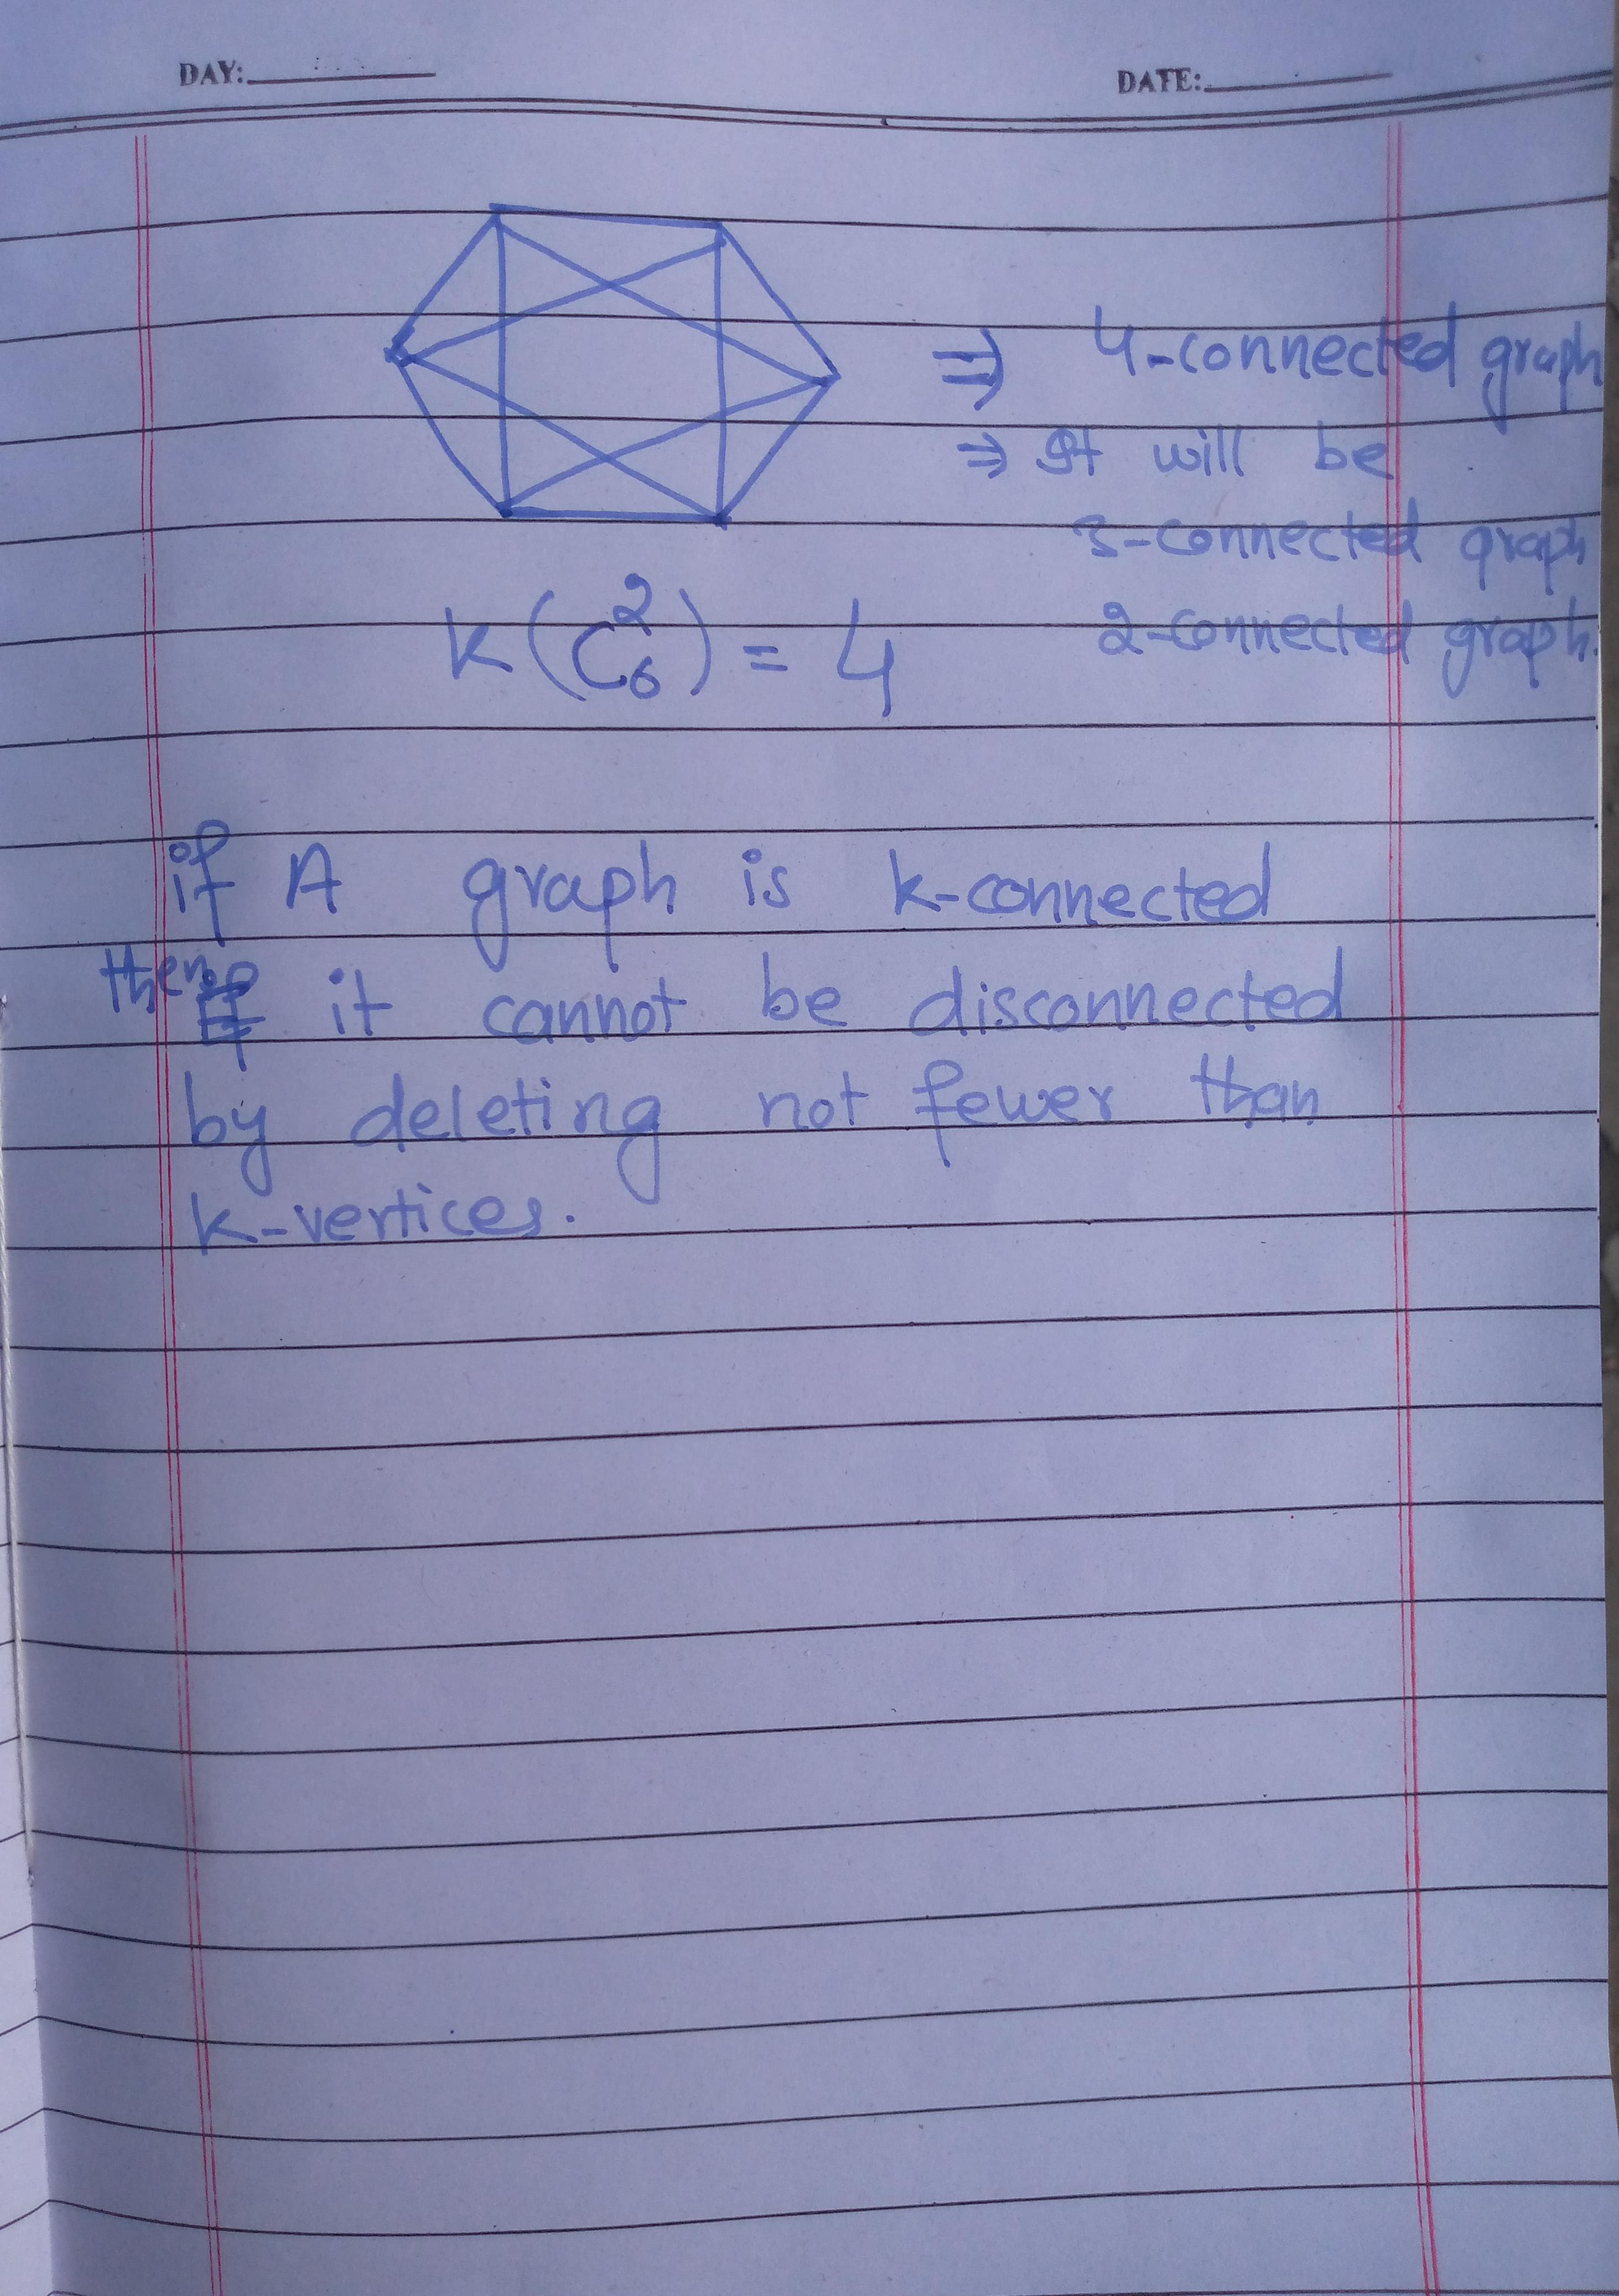 DAY: DATE:
⇒ 4-connected graph
⇒ It will be
3-connected graph
2-connected graph.
K(C₆²) = 4
if A graph is k-connected
then it cannot be disconnected
by deleting not fewer than
k-vertices.